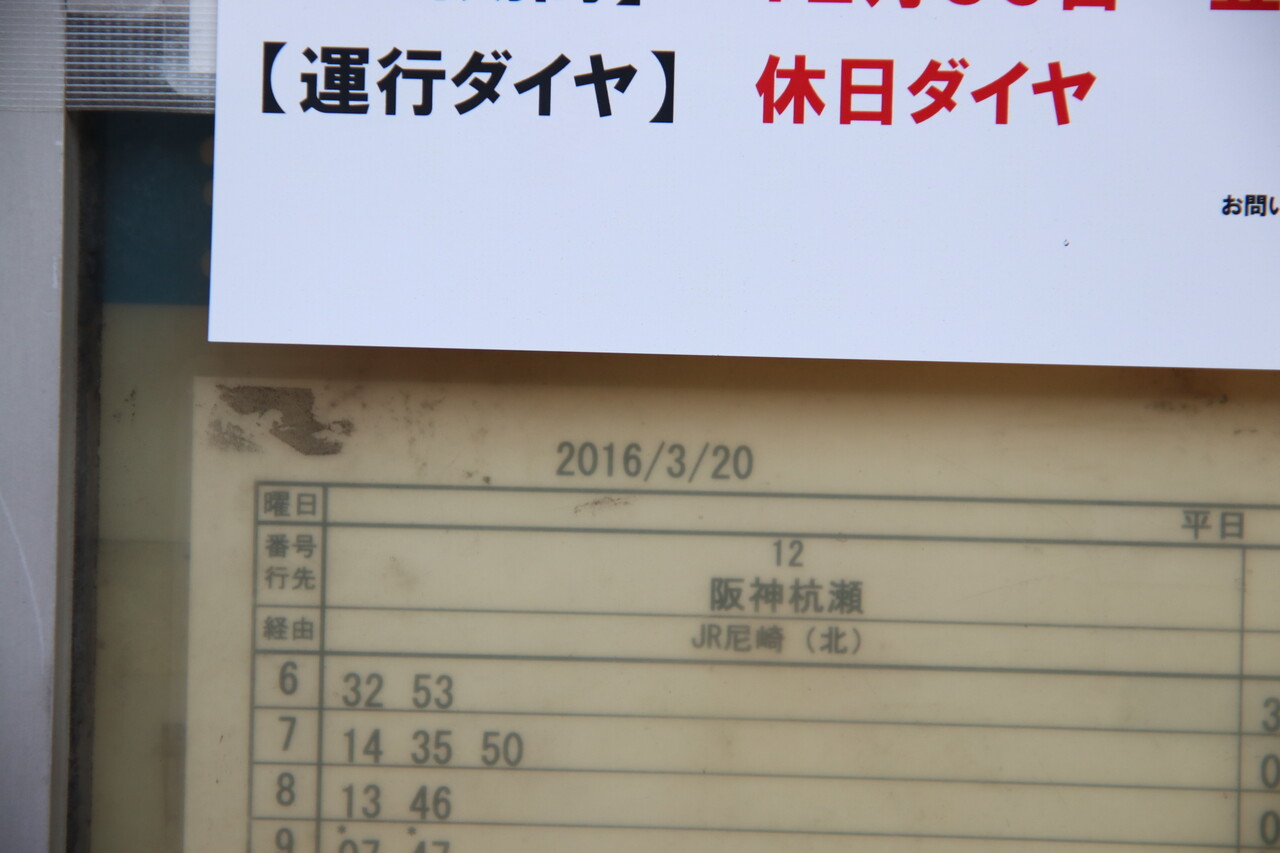 【運行ダイヤ】 休日ダイヤ
お問い
2016/3/20
曜日 平日
番号 12
行先 阪神杭瀬
経由 JR尼崎（北）
6 32 53
7 14 35 50
8 13 46
9 07 47